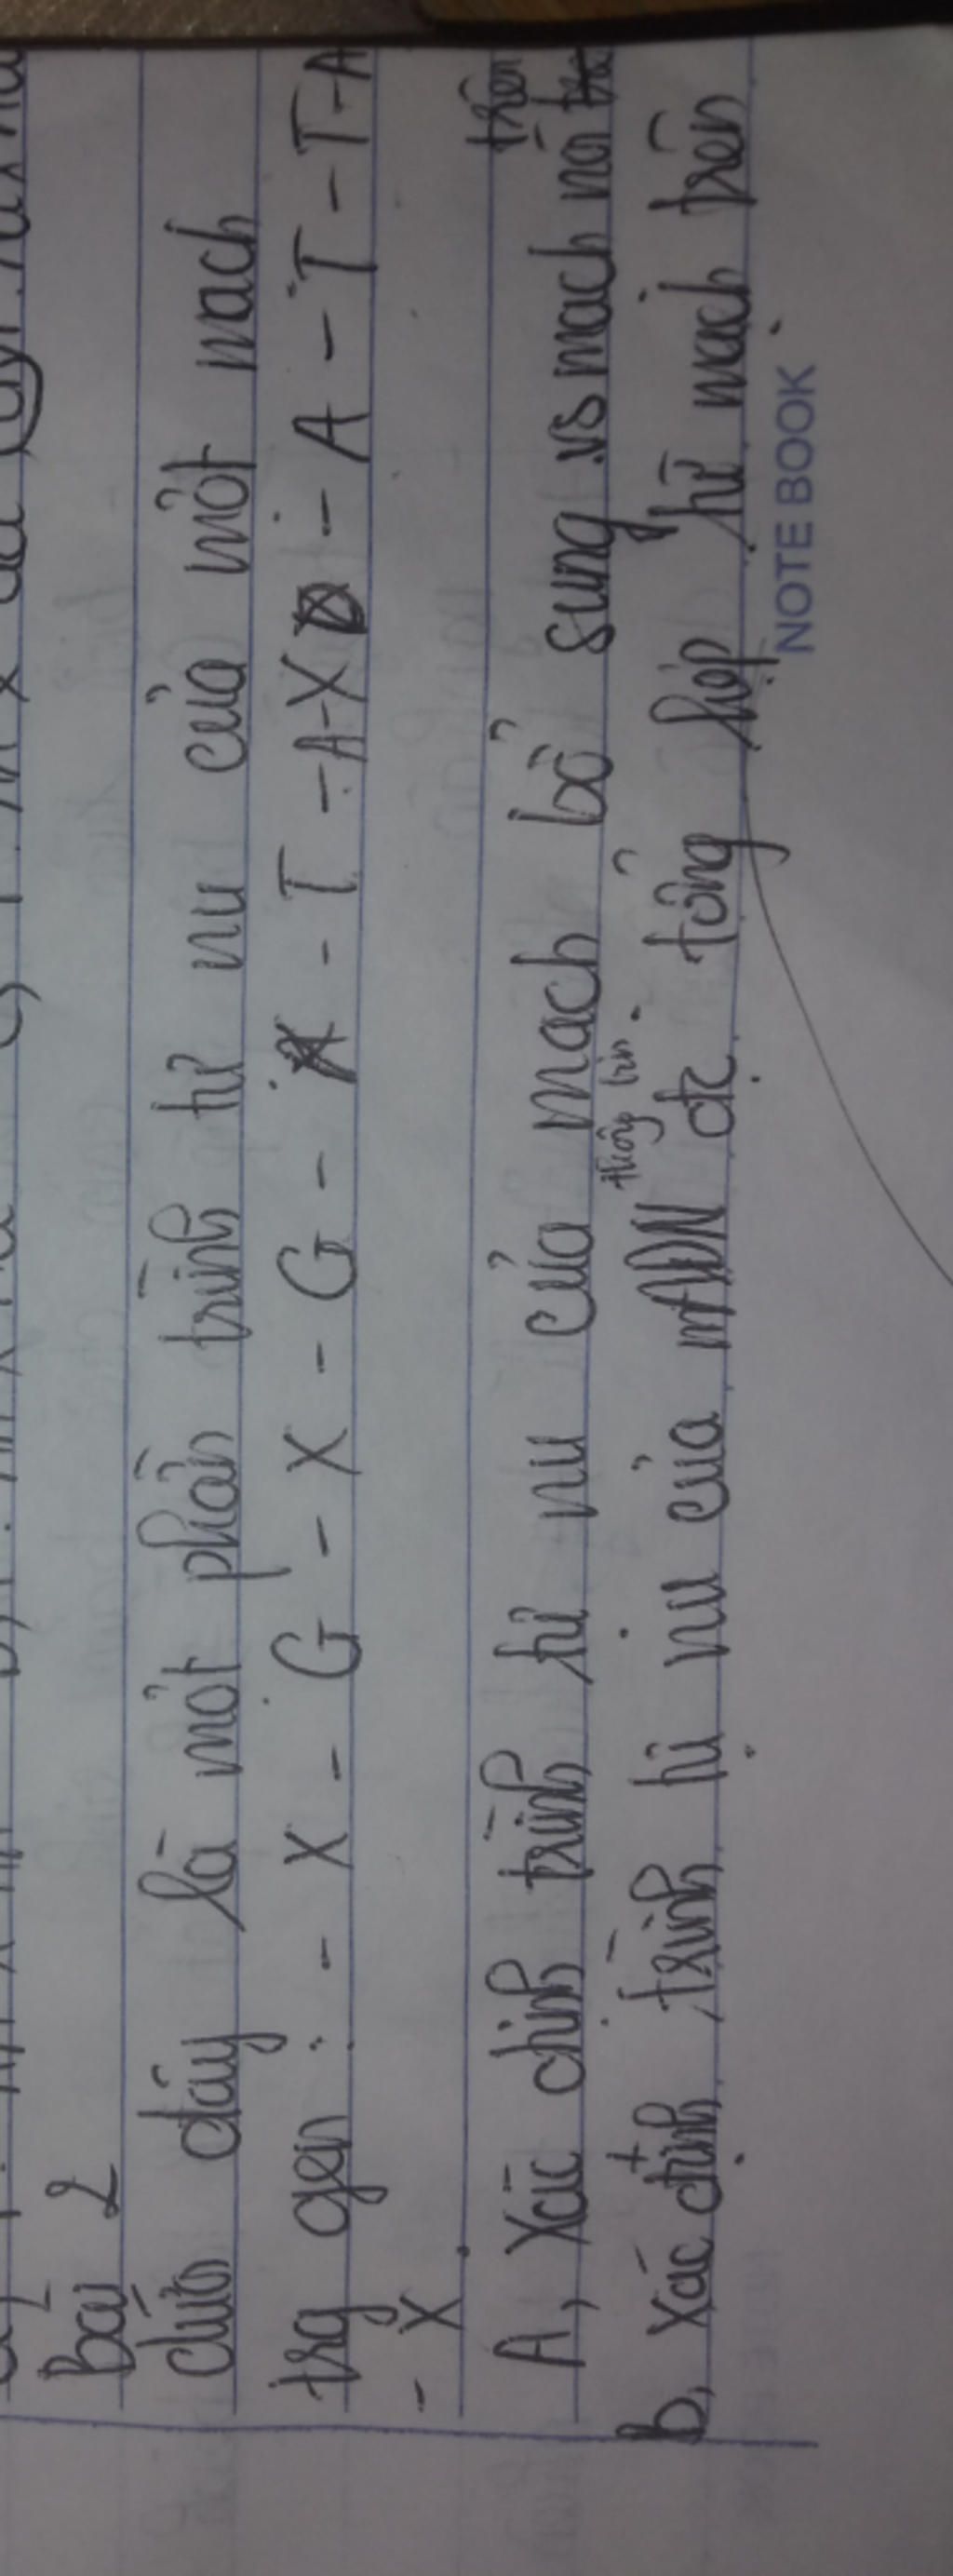 Bài 2
dưới đây là một phần trình tự nu của một mạch
trg gen: - X - G - X - G - X - T - A - X - A - T - T - A
- X.
A, Xác định trình tự nu của mạch bổ sung vs mạch nói trên
thông tin
b, Xác định trình tự nu của mADN đc tổng hợp từ mạch trên
NOTE BOOK